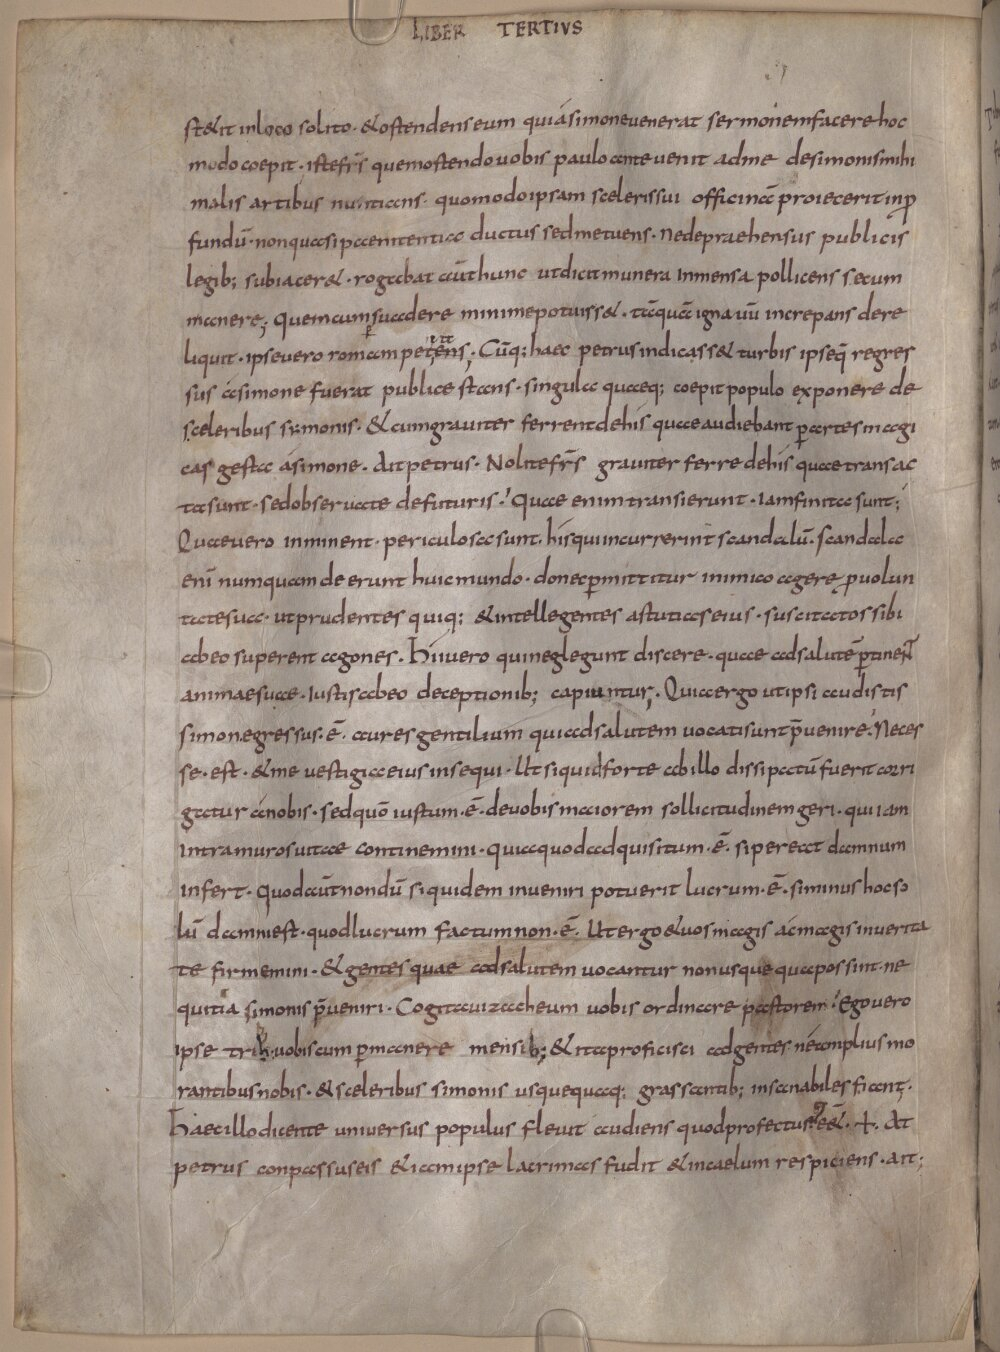 LIBER TERTIUS
stetit inloco solito · & ostendens eum qui ásimone venerat sermonem facere hoc
modo coepit · iste fr̄s quem ostendo vobis paulo ante venit ad me de simonis mihi
malis artibus nuntians · quomodo ipsam sceleris sui officinā proiecerit in p
fundū · non quasi paenitentia ductus sed metuens · ne depraehensus publicis
legib; subiacer& · rogabat aūt hunc ut dicit munera inmensa pollicens secum
manere; Quem cum suadere minime potuiss& · tāquā ignavū increpans dere
liquit · ipse vero romam petens; Cūq; haec petrus indicass& turbis ipseq̄ regres
sus ásimone fuerat publice stans · singula quaeq; coepit populo exponere de
sceleribus simonis · & cum graviter ferrent de his quae audiebant p artes magi
cas gesta ásimone · Ait petrus · Nolite fr̄s graviter ferre de his quae transac
ta sunt · sed observate de futuris · Quae enim transierunt · iam finita sunt;
Quae vero inminent · periculosa sunt · his qui incurrerint scandalū · scandala
enī numquam deerunt huic mundo · donec pmittitur inimico agere p volun
tate sua · ut prudentes quiq; & intellegentes astutias eius · suscitatos sibi
ab eo superent agones · Hii vero qui neglegunt discere · quae ad salutē ptinent
animae suae · iustis ab eo deceptionib; capiuntur; Quia ergo ut ipsi audistis
simon egressus · ē · aures gentilium qui ad salutem vocati sunt p̄venire · Neces
se · est · & me vestigia eius insequi · Ut si quid forte ab illo dissipatū fuerit corri
gatur á nobis · sed quō iustum · ē · de vobis maiorem sollicitudinem geri · qui iam
intra muros vitae continemini · quia quod adquisitum · ē · si pereat damnum
infert · quod aūt nondū siquidem inveniri potuerit lucrum · ē · si minus hoc so
lū damni est · quod lucrum factum non · ē · Ut ergo & vos magis ac magis in verita
te firmemini · & gentes quae ad salutem vocantur non usque quaepossint · ne
quitia simonis p̄veniri · Cogitavi zacheum vobis ordinare pastorem · Ego vero
ipse vobiscum pmanere mensib; & ita proficisci ad gentes ne amplius mo
rantibus nobis · & sceleribus simonis usquequaq; grassantib; insanabiles fiant ·
Haec illo dicente universus populus flevit audiens quod profectus eēt · At
petrus conpassus eis & iam ipse lacrimas fudit & in caelum respiciens · ait;